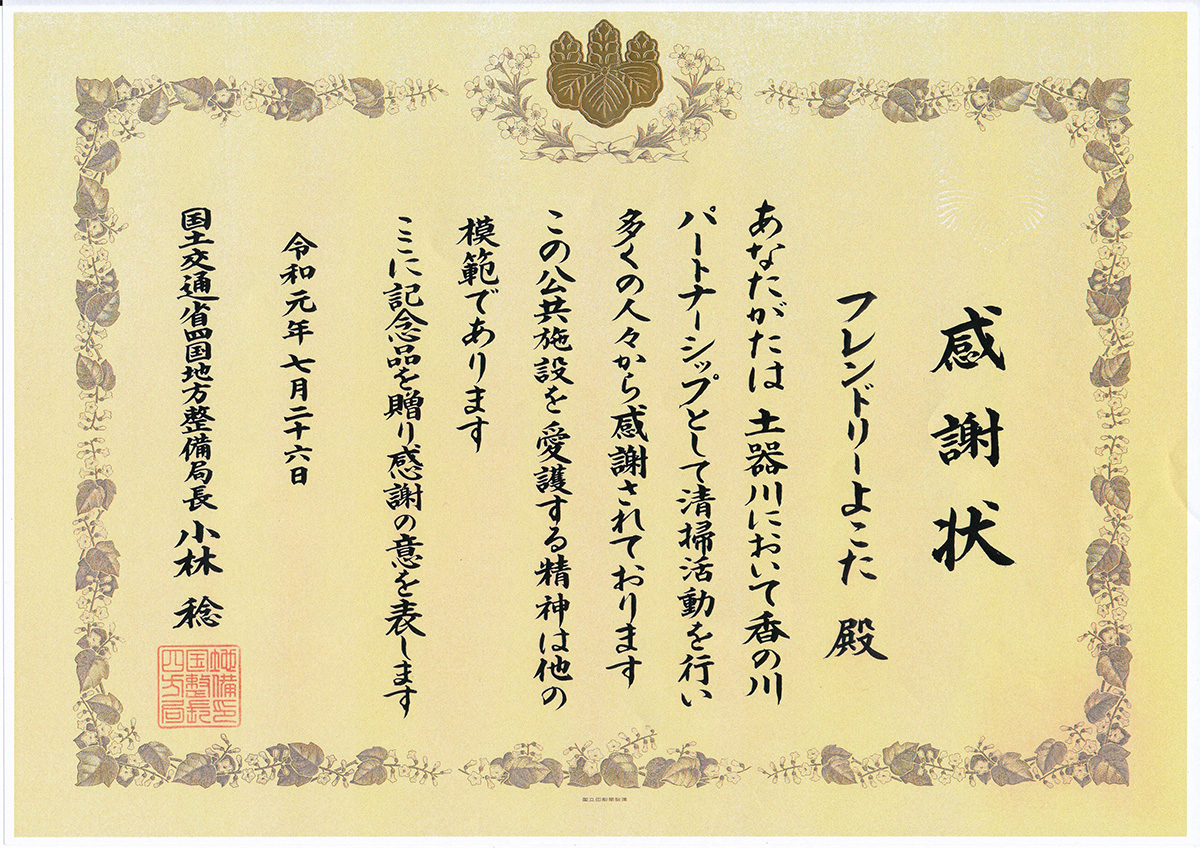 感謝状
フレンドリーよこた 殿
あなたがたは土器川において香の川
パートナーシップとして清掃活動を行い
多くの人々から感謝されております
この公共施設を愛護する精神は他の
模範であります
ここに記念品を贈り感謝の意を表します
令和元年七月二十六日
国土交通省四国地方整備局長 小林 稔
四国地方整備局長印